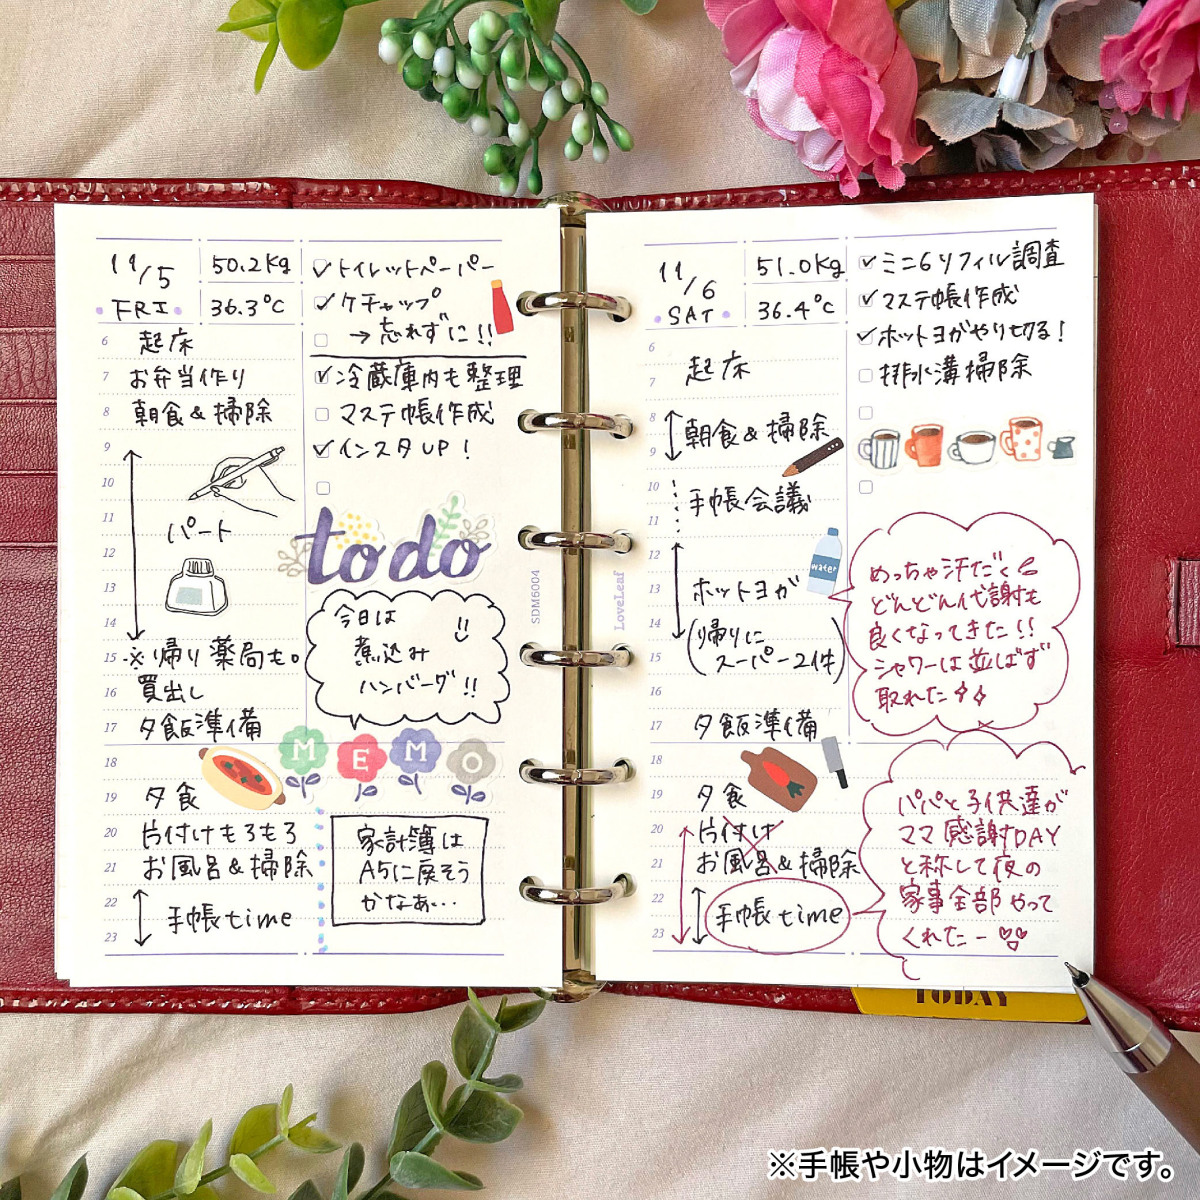 11/5
FRI
50.2kg
36.3℃
トイレットペーパー
ケチャップ
→忘れずに!!
冷蔵庫内も整理
マステ帳作成
インスタUP!
6 起床
7 お弁当作り
8 朝食&掃除
9
10
11 パート
12
13
14
15 ※帰り薬局も。
16 買出し
17 夕飯準備
18
19 夕食
20 片付けもろもろ
21 お風呂&掃除
22 手帳time
23
to do
今日は
煮込み
ハンバーグ!!
MEMO
家計簿は
A5に戻そう
かなぁ…
SDM6004
LoveLeaf
11/6
SAT
51.0kg
36.4℃
ミニ6リフィル調査
マステ帳作成
ホットヨガやり切る!
排水溝掃除
6
7 起床
8
9 朝食&掃除
10 手帳会議
11
12
13 ホットヨガ
14 (帰りに
15 スーパー2件)
16
17 夕飯準備
18
19 夕食
20 片付け
21 お風呂&掃除
22 手帳time
23
water
めっちゃ汗だく
どんどん代謝も
良くなってきた!!
シャワーは並ばず
取れた
パパと子供達が
ママ感謝DAY
と称して夜の
家事全部やって
くれたー
TODAY
※手帳や小物はイメージです。